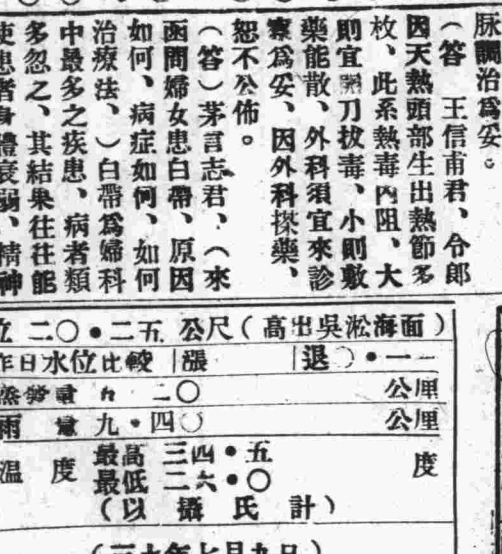 脉調治爲妥。
（答　王信甫君、令郎
因天熱頭部生出熱節多
枚、此系熱毒內阻、大
則宜開刀拔毒、小則敷
藥能散、外科須宜來診
察爲妥、因外科搽藥、
恕不公佈。
（答）茅言志君、（來
函問婦女患白帶、原因
如何、病症如何、如何
治療法、）白帶爲婦科
中最多之疾患、病者類
多忽之、其結果往往能
使患者身體衰弱、精神
位 二〇•二五 公尺（高出吳淞海面）
昨日水位比較 漲 退〇•一一
蒸發量 二〇 公厘
雨量 九•四〇 公厘
溫度 最高 三四•五 度
最低 二六•〇
（以攝氏計）
年七月九日）